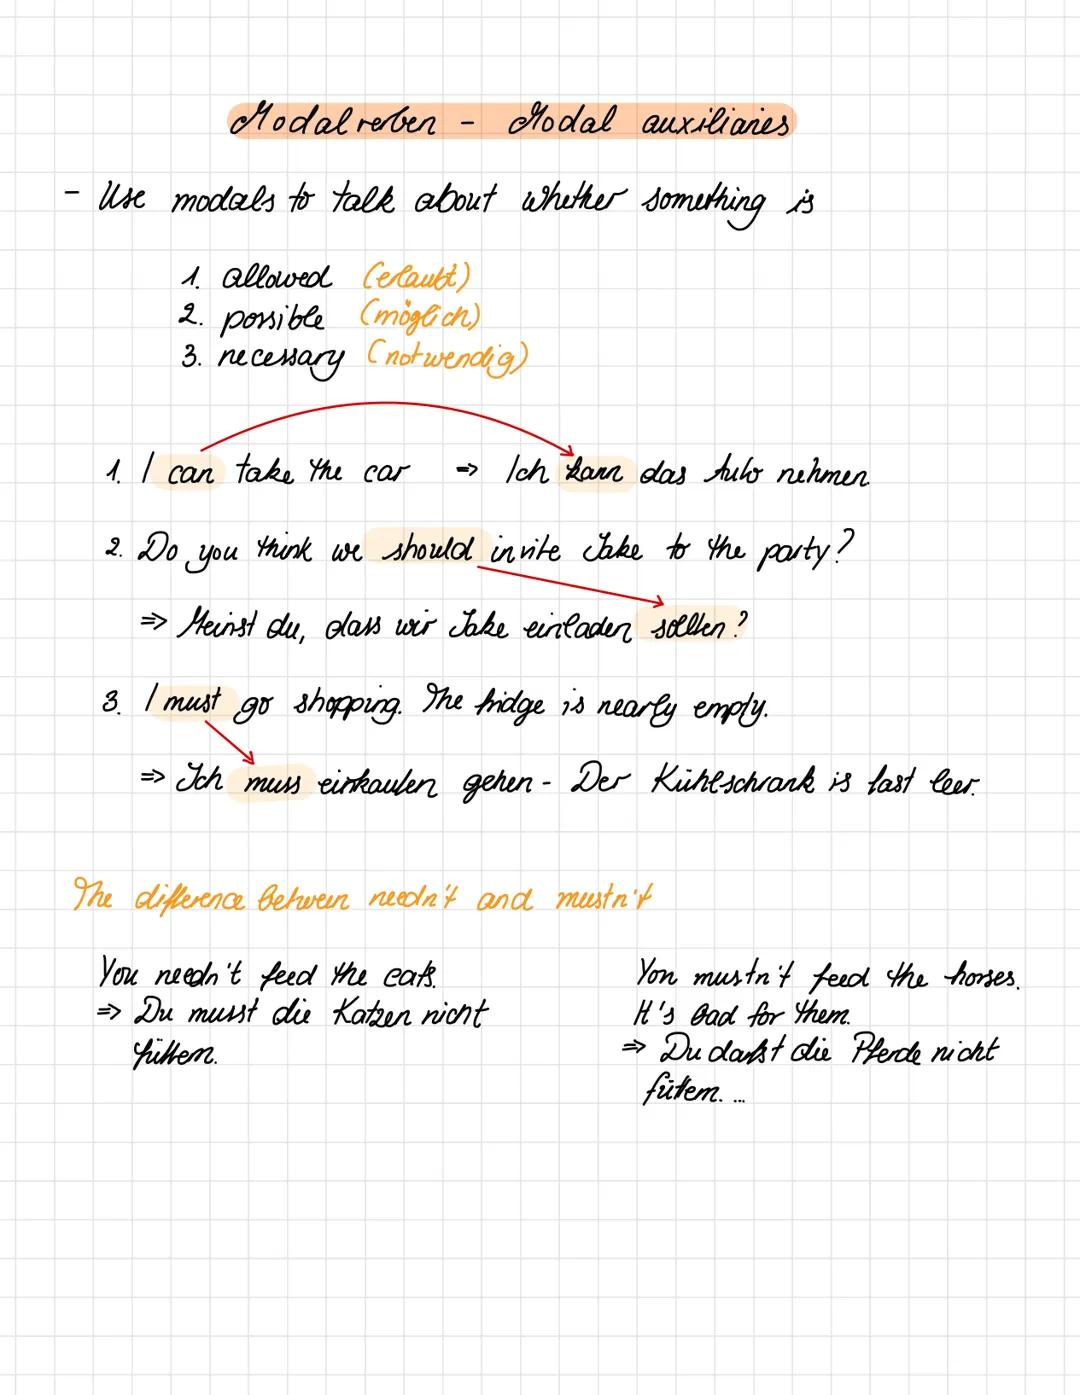 Modalverben - Modal auxiliaries
- Use modals to talk about whether something is
1. allowed (erlaubt)
2. possible (möglich)
3. necessary (notwendig)
1. I can take the car => Ich kann das Auto nehmen.
2. Do you think we should invite Jake to the party?
=> Meinst du, dass wir Jake einladen sollten?
3. I must go shopping. The fridge is nearly empty.
=> Ich muss einkaufen gehen - Der Kühlschrank is fast leer.
The difference between needn't and mustn't
You needn't feed the cats.
=> Du musst die Katzen nicht
füttern.
You mustn't feed the horses.
It's bad for them.
=> Du darfst die Pferde nicht
füttern. ...